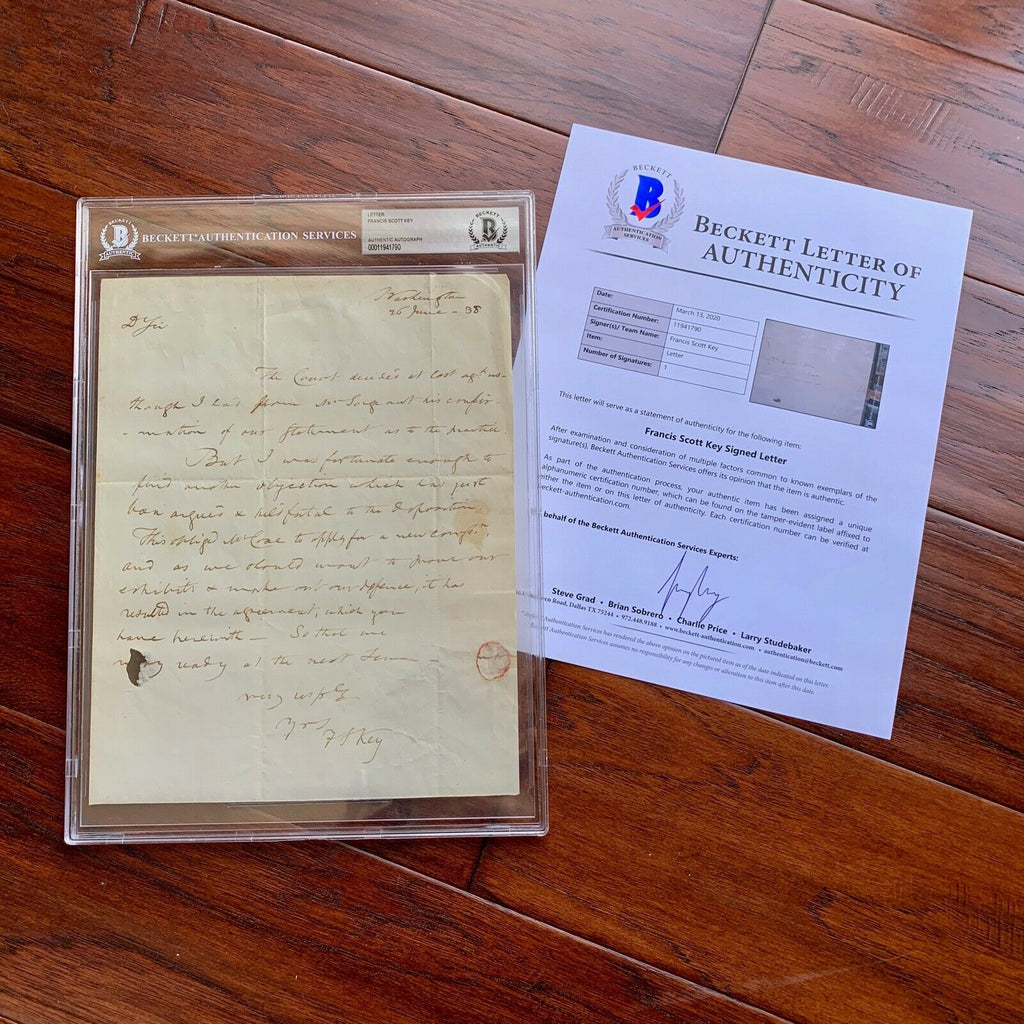 BECKETT
AUTHENTIC
BECKETT AUTHENTICATION SERVICES
LETTER
FRANCIS SCOTT KEY
AUTHENTIC AUTOGRAPH
00011941790
BECKETT
AUTHENTIC
Washington
26 June - 38
Dr Sir
The Court decided at last agt us-
though I had from Mr his confir-
-mation of our Statement as to the practice.
But I was fortunate enough to
find another objection which has just
been argued & held fatal to the Deposition.
This obliged Mr Coxe to apply for a new
and as we should want to prove our
exhibits & make out our defence, it has
resulted in the agreement, which you
have herewith - So that we
may ready at the next Term -
very
Yrs
F S Key
BECKETT
AUTHENTICATION
SERVICES
BECKETT LETTER OF
AUTHENTICITY
Date: March 13, 2020
Certification Number: 11941790
Signer(s)/ Team Name: Francis Scott Key
Item: Letter
Number of Signatures: 1
This letter will serve as a statement of authenticity for the following item:
Francis Scott Key Signed Letter
After examination and consideration of multiple factors common to known exemplars of the
signature(s), Beckett Authentication Services offers its opinion that the item is authentic.
As part of the authentication process, your authentic item has been assigned a unique
alphanumeric certification number, which can be found on the tamper-evident label affixed to
either the item or on this letter of authenticity. Each certification number can be verified at
beckett-authentication.com.
behalf of the Beckett Authentication Services Experts:
Steve Grad • Brian Sobrero • Charlie Price • Larry Studebaker
Road, Dallas TX 75244 • 972.448.9188 • www.beckett-authentication.com • authentication@beckett.com
Beckett Authentication Services has rendered the above opinion on the pictured item as of the date indicated on this letter.
Beckett Authentication Services assumes no responsibility for any changes or alteration to this item after this date.